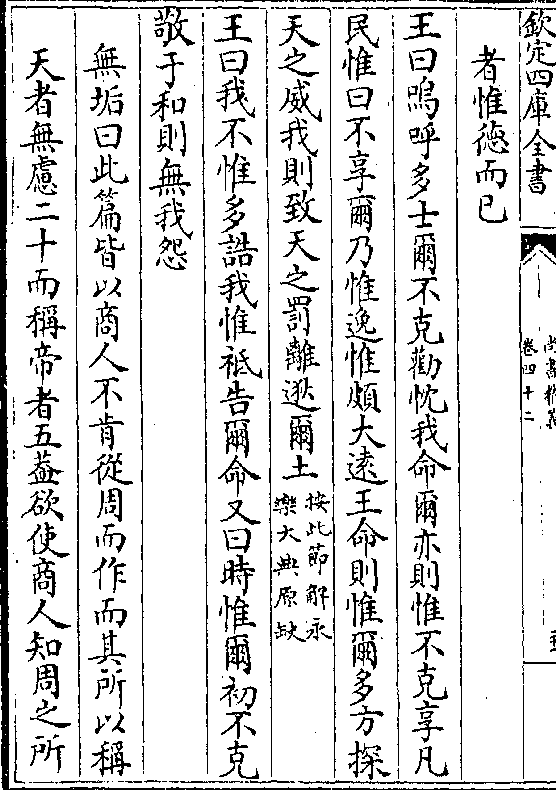 欽定四庫全書
卷四十二
者惟德而已
王曰嗚呼多士爾不克勸忱我命爾亦則惟不克享凡
民惟曰不享爾乃惟逸惟頗大遠王命則惟爾多方探
天之威我則致天之罰離逖爾土按此節解永
樂大典原缺
王曰我不惟多誥我惟祗告爾命又曰時惟爾初不克
敬于和則無我怨
無垢曰此篇皆以商人不肯從周而作而其所以稱
天者無慮二十而稱帝者五葢欲使商人知周之所